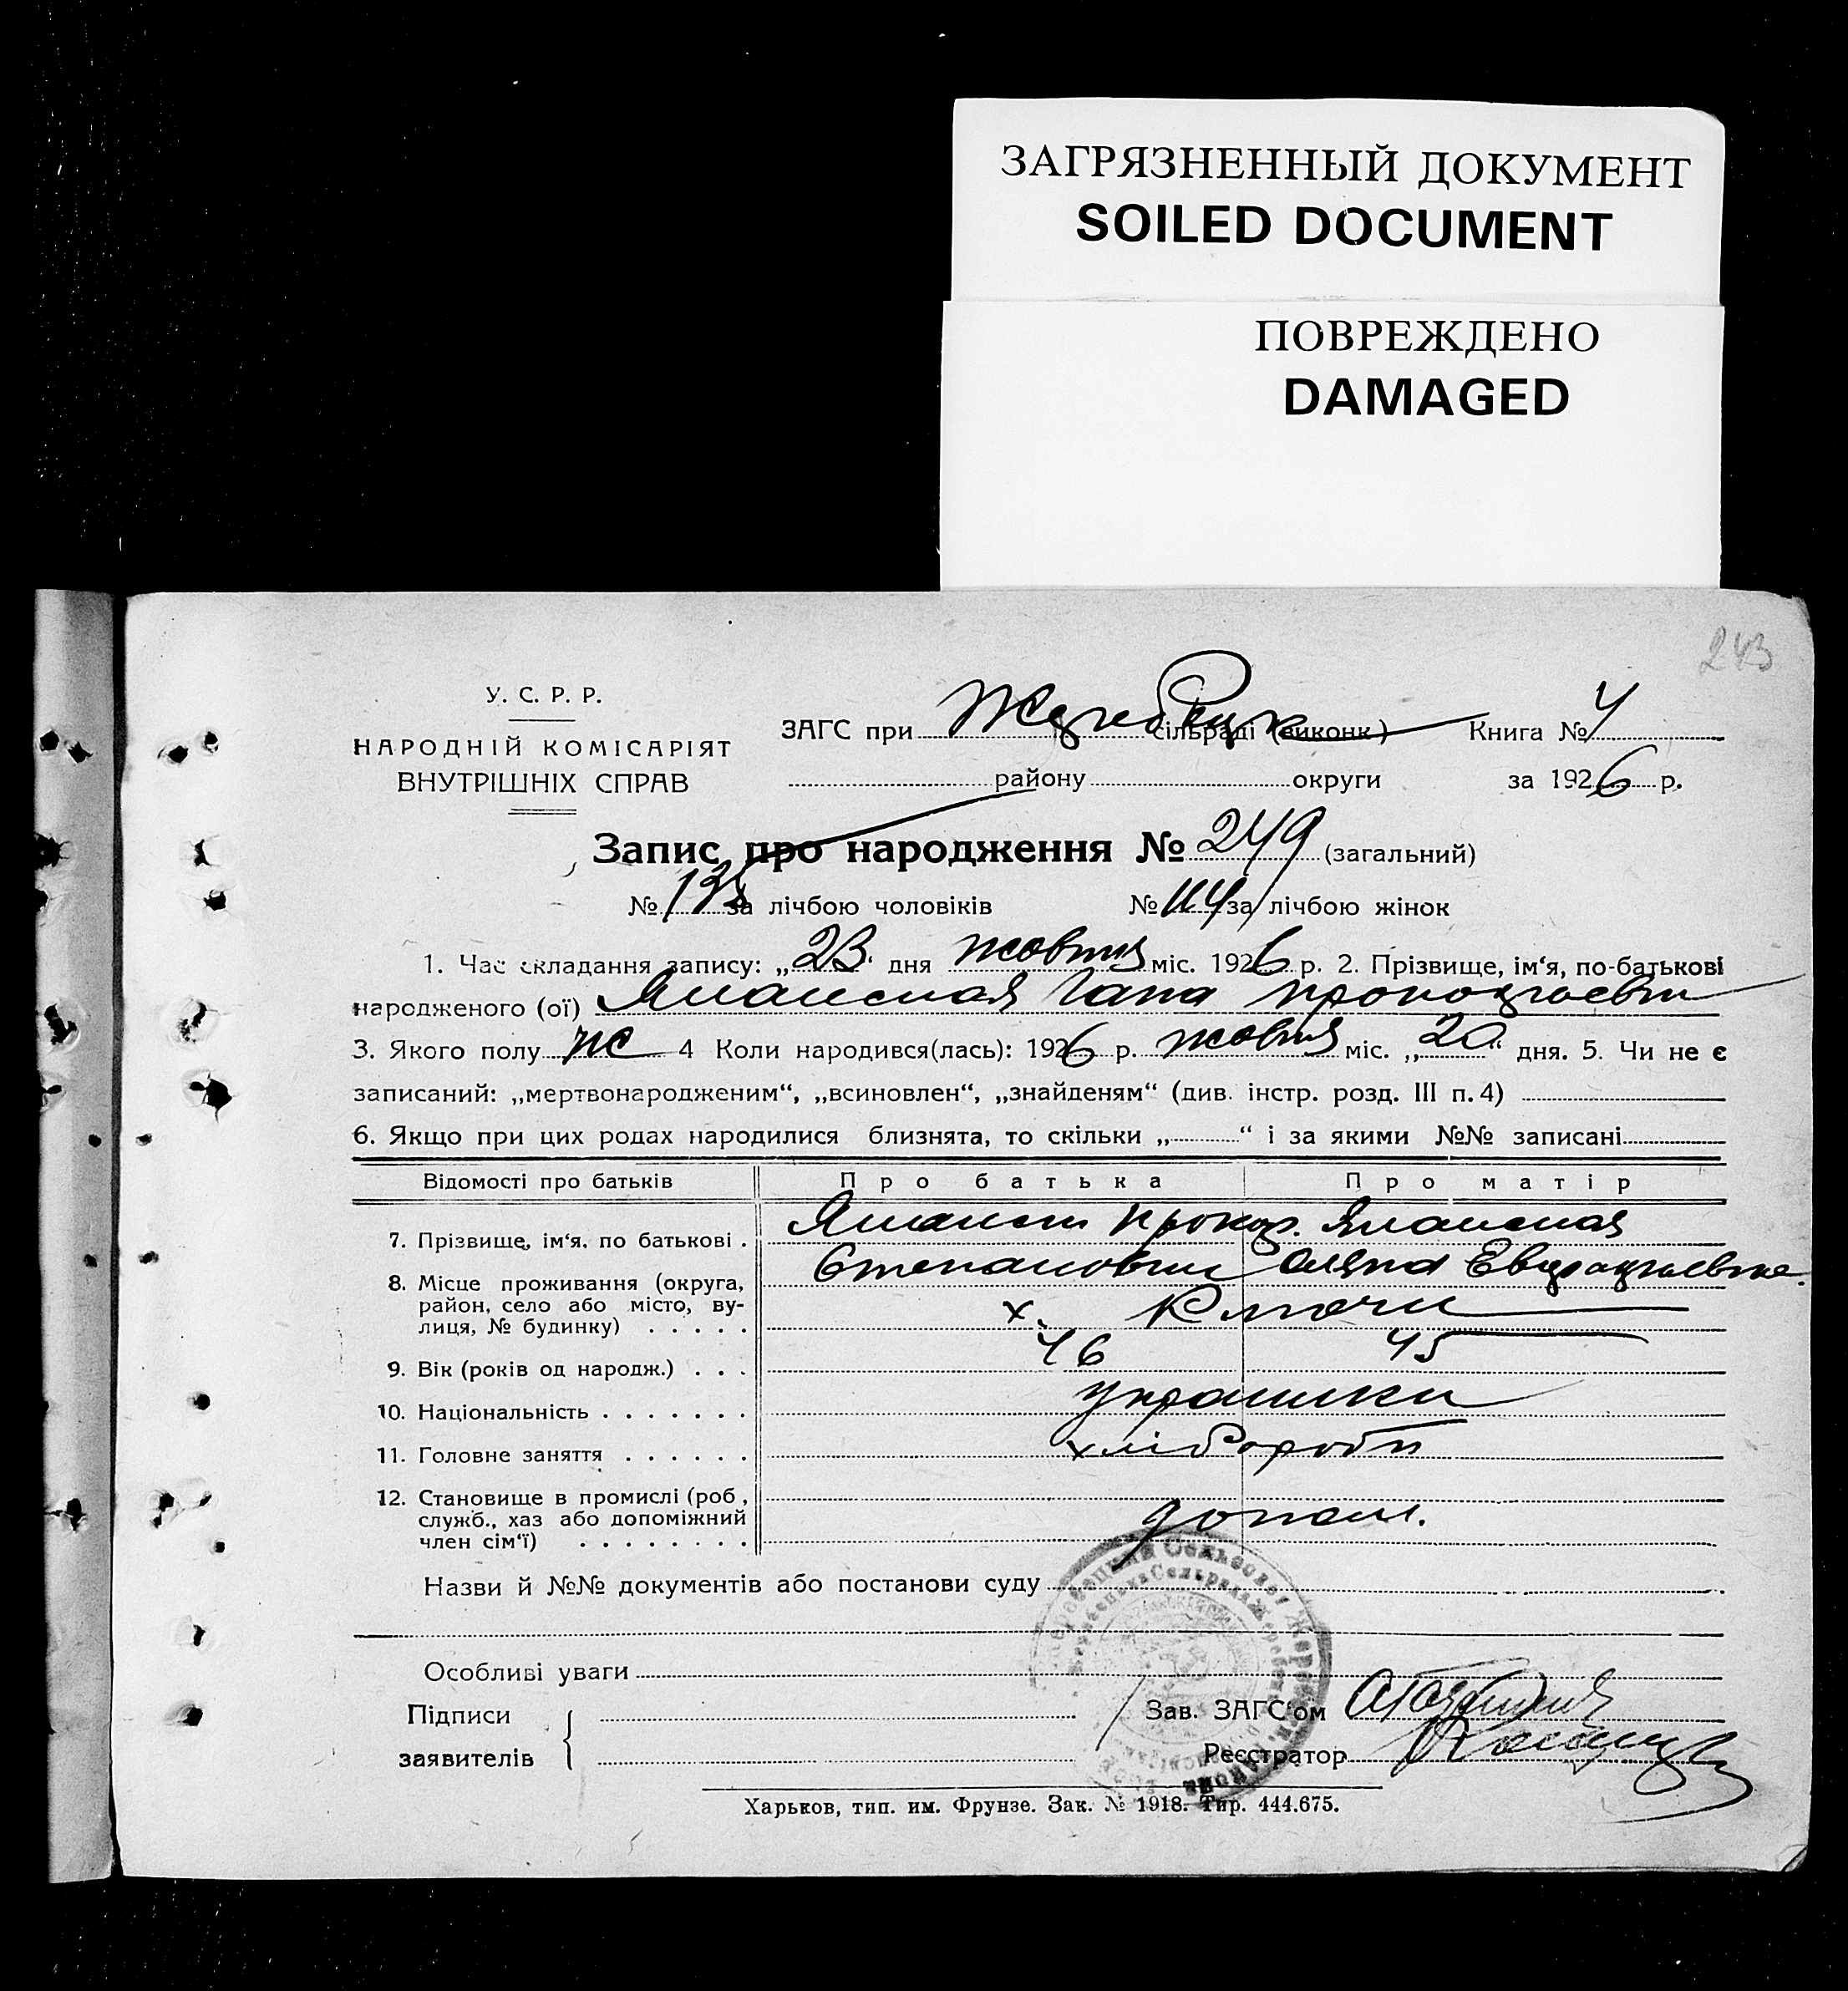 ЗАГРЯЗНЕННЫЙ ДОКУМЕНТ
SOILED DOCUMENT
ПОВРЕЖДЕНО
DAMAGED
243
У. С. Р. Р.
НАРОДНІЙ КОМІСАРІЯТ
ВНУТРІШНІХ СПРАВ
ЗАГС при сільраді (виконк) Книга № 4
району округи за 1926 р.
Запис про народження № 249 (загальний)
№ 135 за лічбою чоловіків № 114 за лічбою жінок
1. Час складання запису: „23“ дня жовтня міс. 1926 р. 2. Прізвище, ім‘я, по-батькові
народженого (ої) Гапа
3. Якого полу ж 4 Коли народився(лась): 1926 р. жовтня міс. „20“ дня. 5. Чи не є
записаний: „мертвонародженим“, „всиновлен“, „знайденям“ (див. інстр. розд. III п. 4)
6. Якщо при цих родах народилися близнята, то скільки „ “ і за якими №№ записані
Відомості про батьків Про батька Про матір
7. Прізвище, ім‘я, по батькові . Прокоп.
Степанович
8. Місце проживання (округа,
район, село або місто, ву-
лиця, № будинку) . . . . . х. Ключи
9. Вік (років од народж.) . . . 46 45
10. Національність . . . . . . . украинки
11. Головне заняття . . . . . . хлібороби
12. Становище в промислі (роб,
служб., хаз або допоміжний
член сім‘ї) . . . . . . . . допом.
Назви й №№ документів або постанови суду
Особливі уваги
Підписи
заявителів
Зав. ЗАГС‘ом
Реєстратор
Харьков, тип. им. Фрунзе. Зак. № 1918. Тир. 444.675.